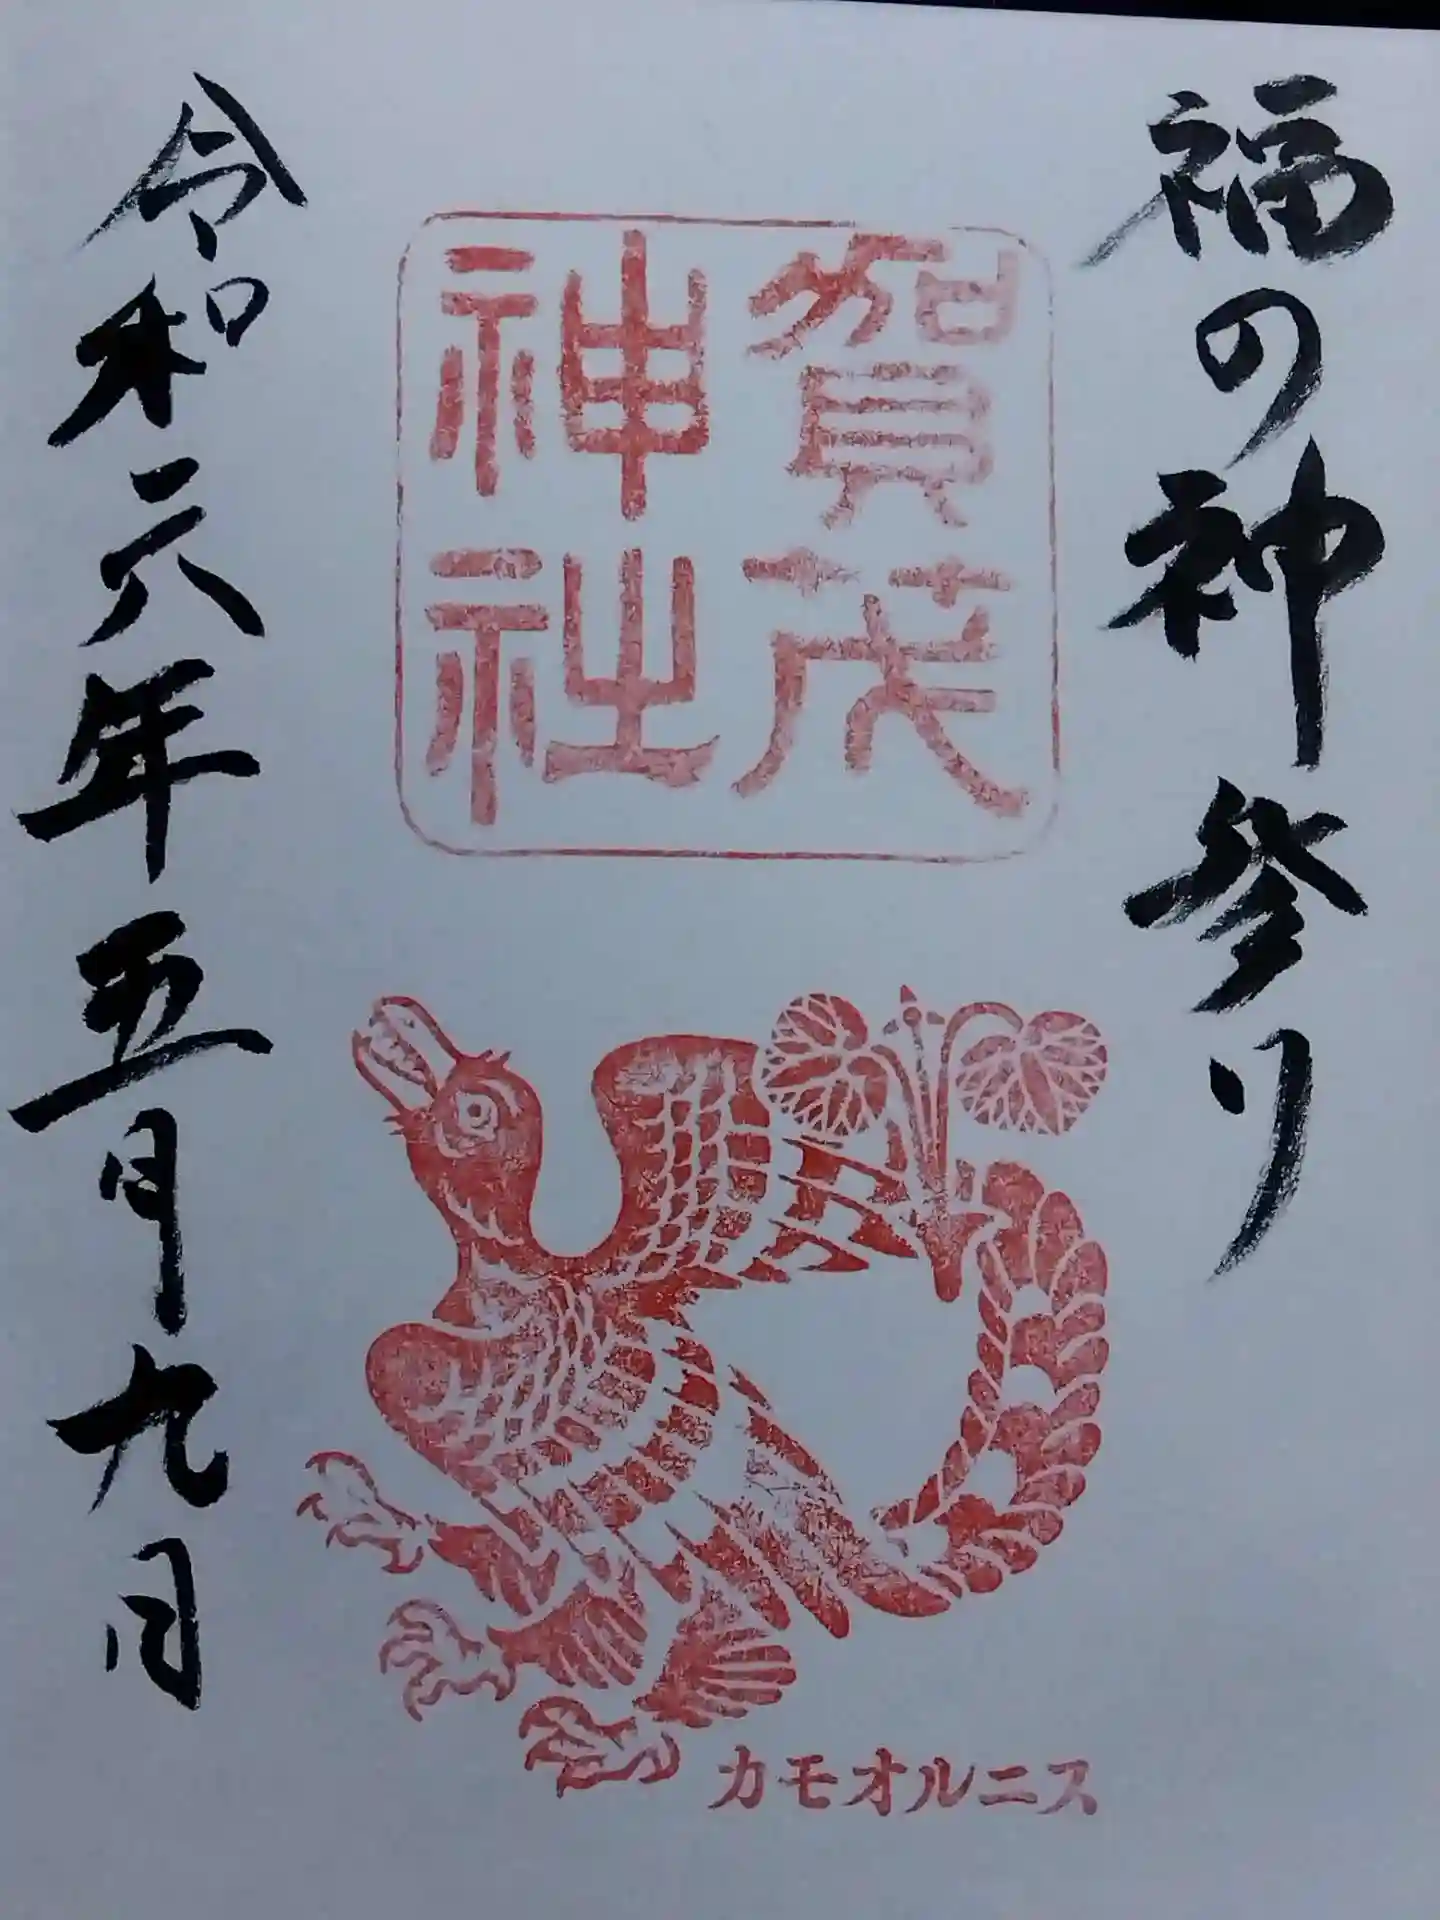 福の神祭り
賀茂
神社
カモオルニス
令和六年五月九日